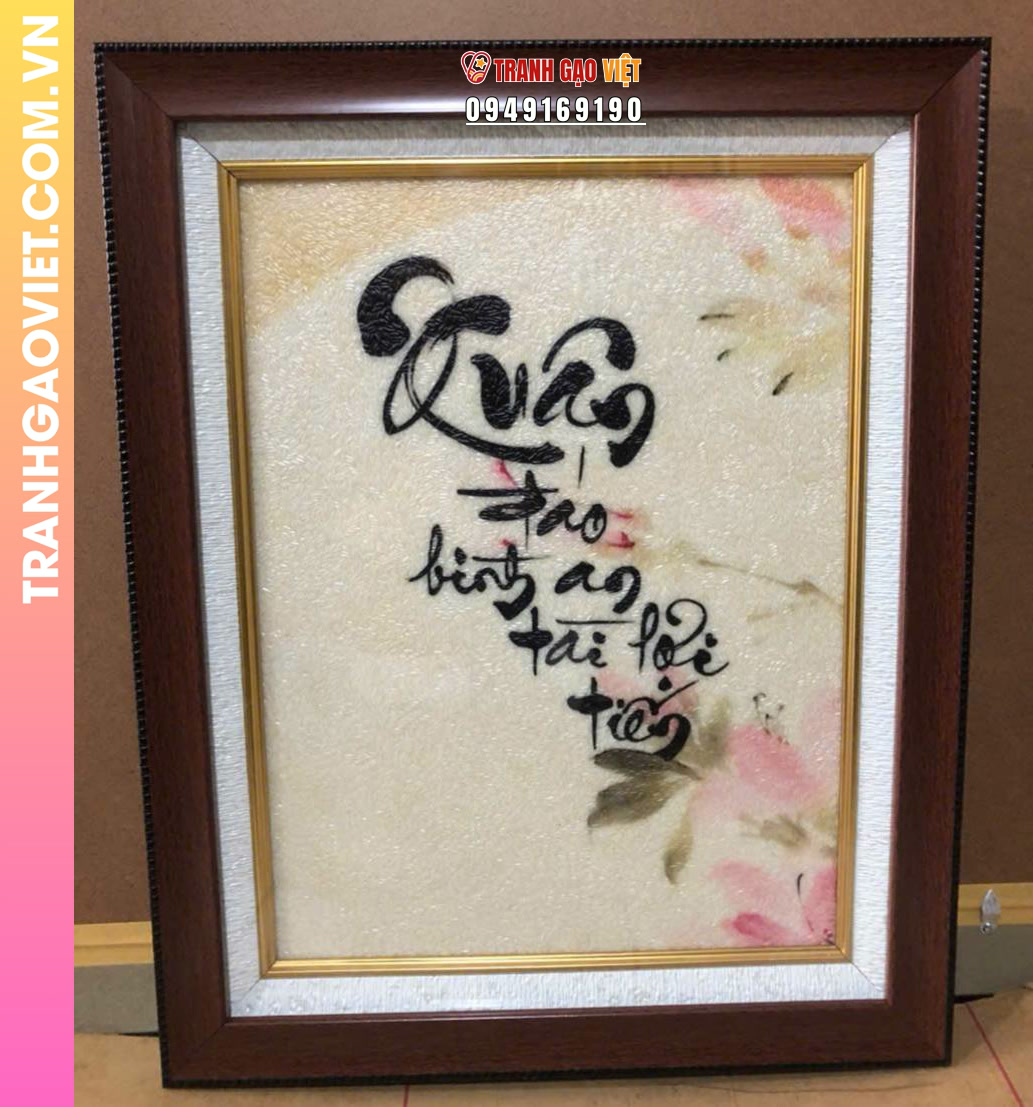 TRANHGAOVIET.COM.VN
TRANH GẠO VIỆT
0949169190
Xuân
đáo
bình an
tài lợi
tiến